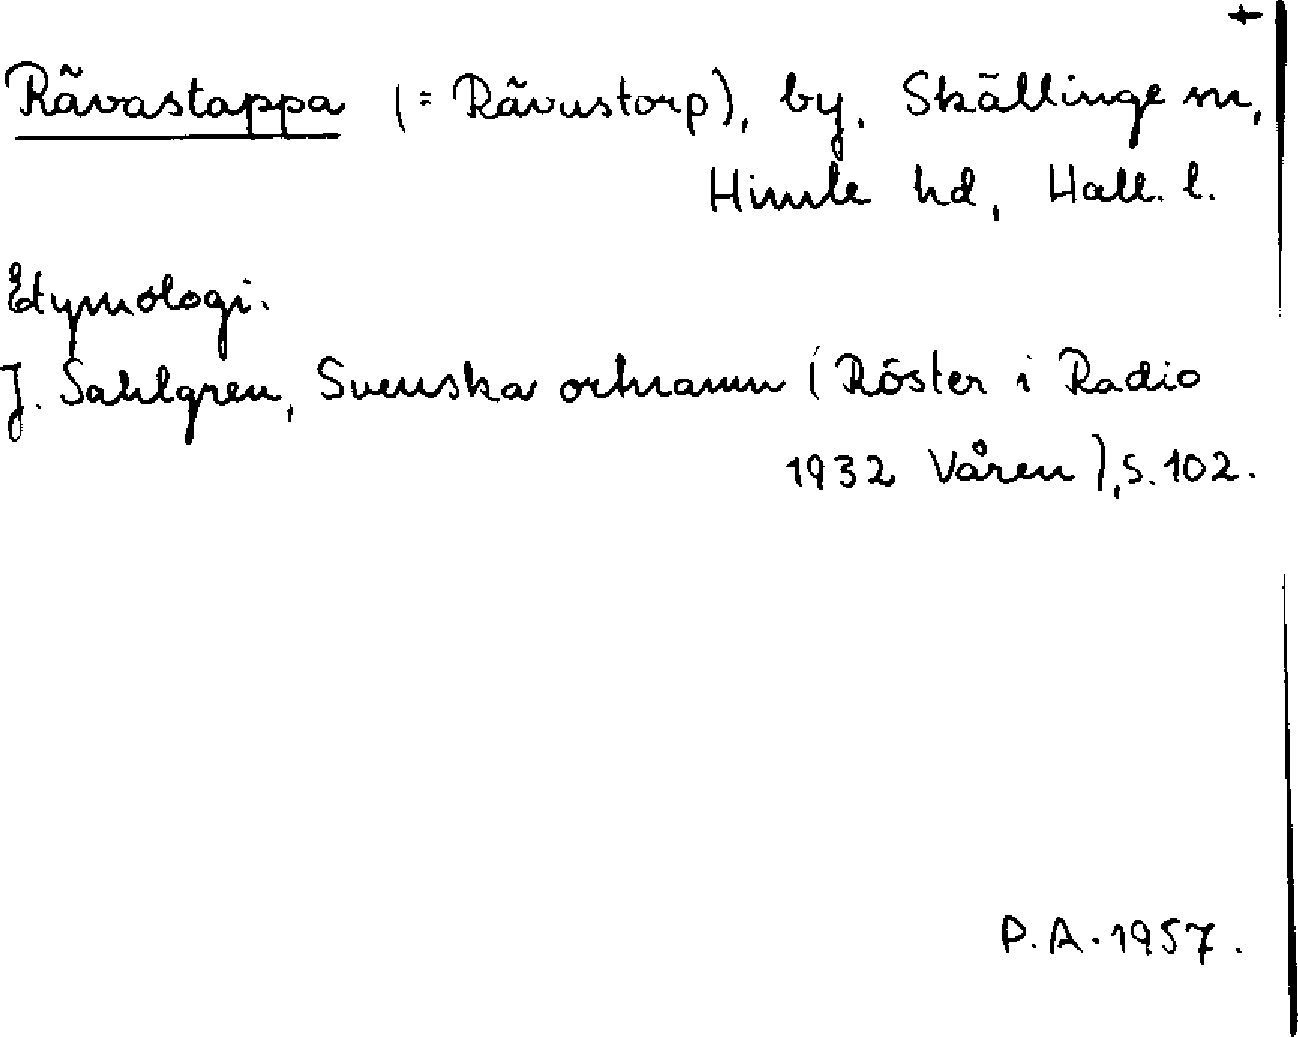 +
Rävastappa (= Rävustorp), by. Skällinge sn,
Himle hd, Hall. l.
Etymologi.
J. Sahlgren, Svenska ortnamn (Röster i Radio
1932 Våren), s. 102.
P.A. 1957.